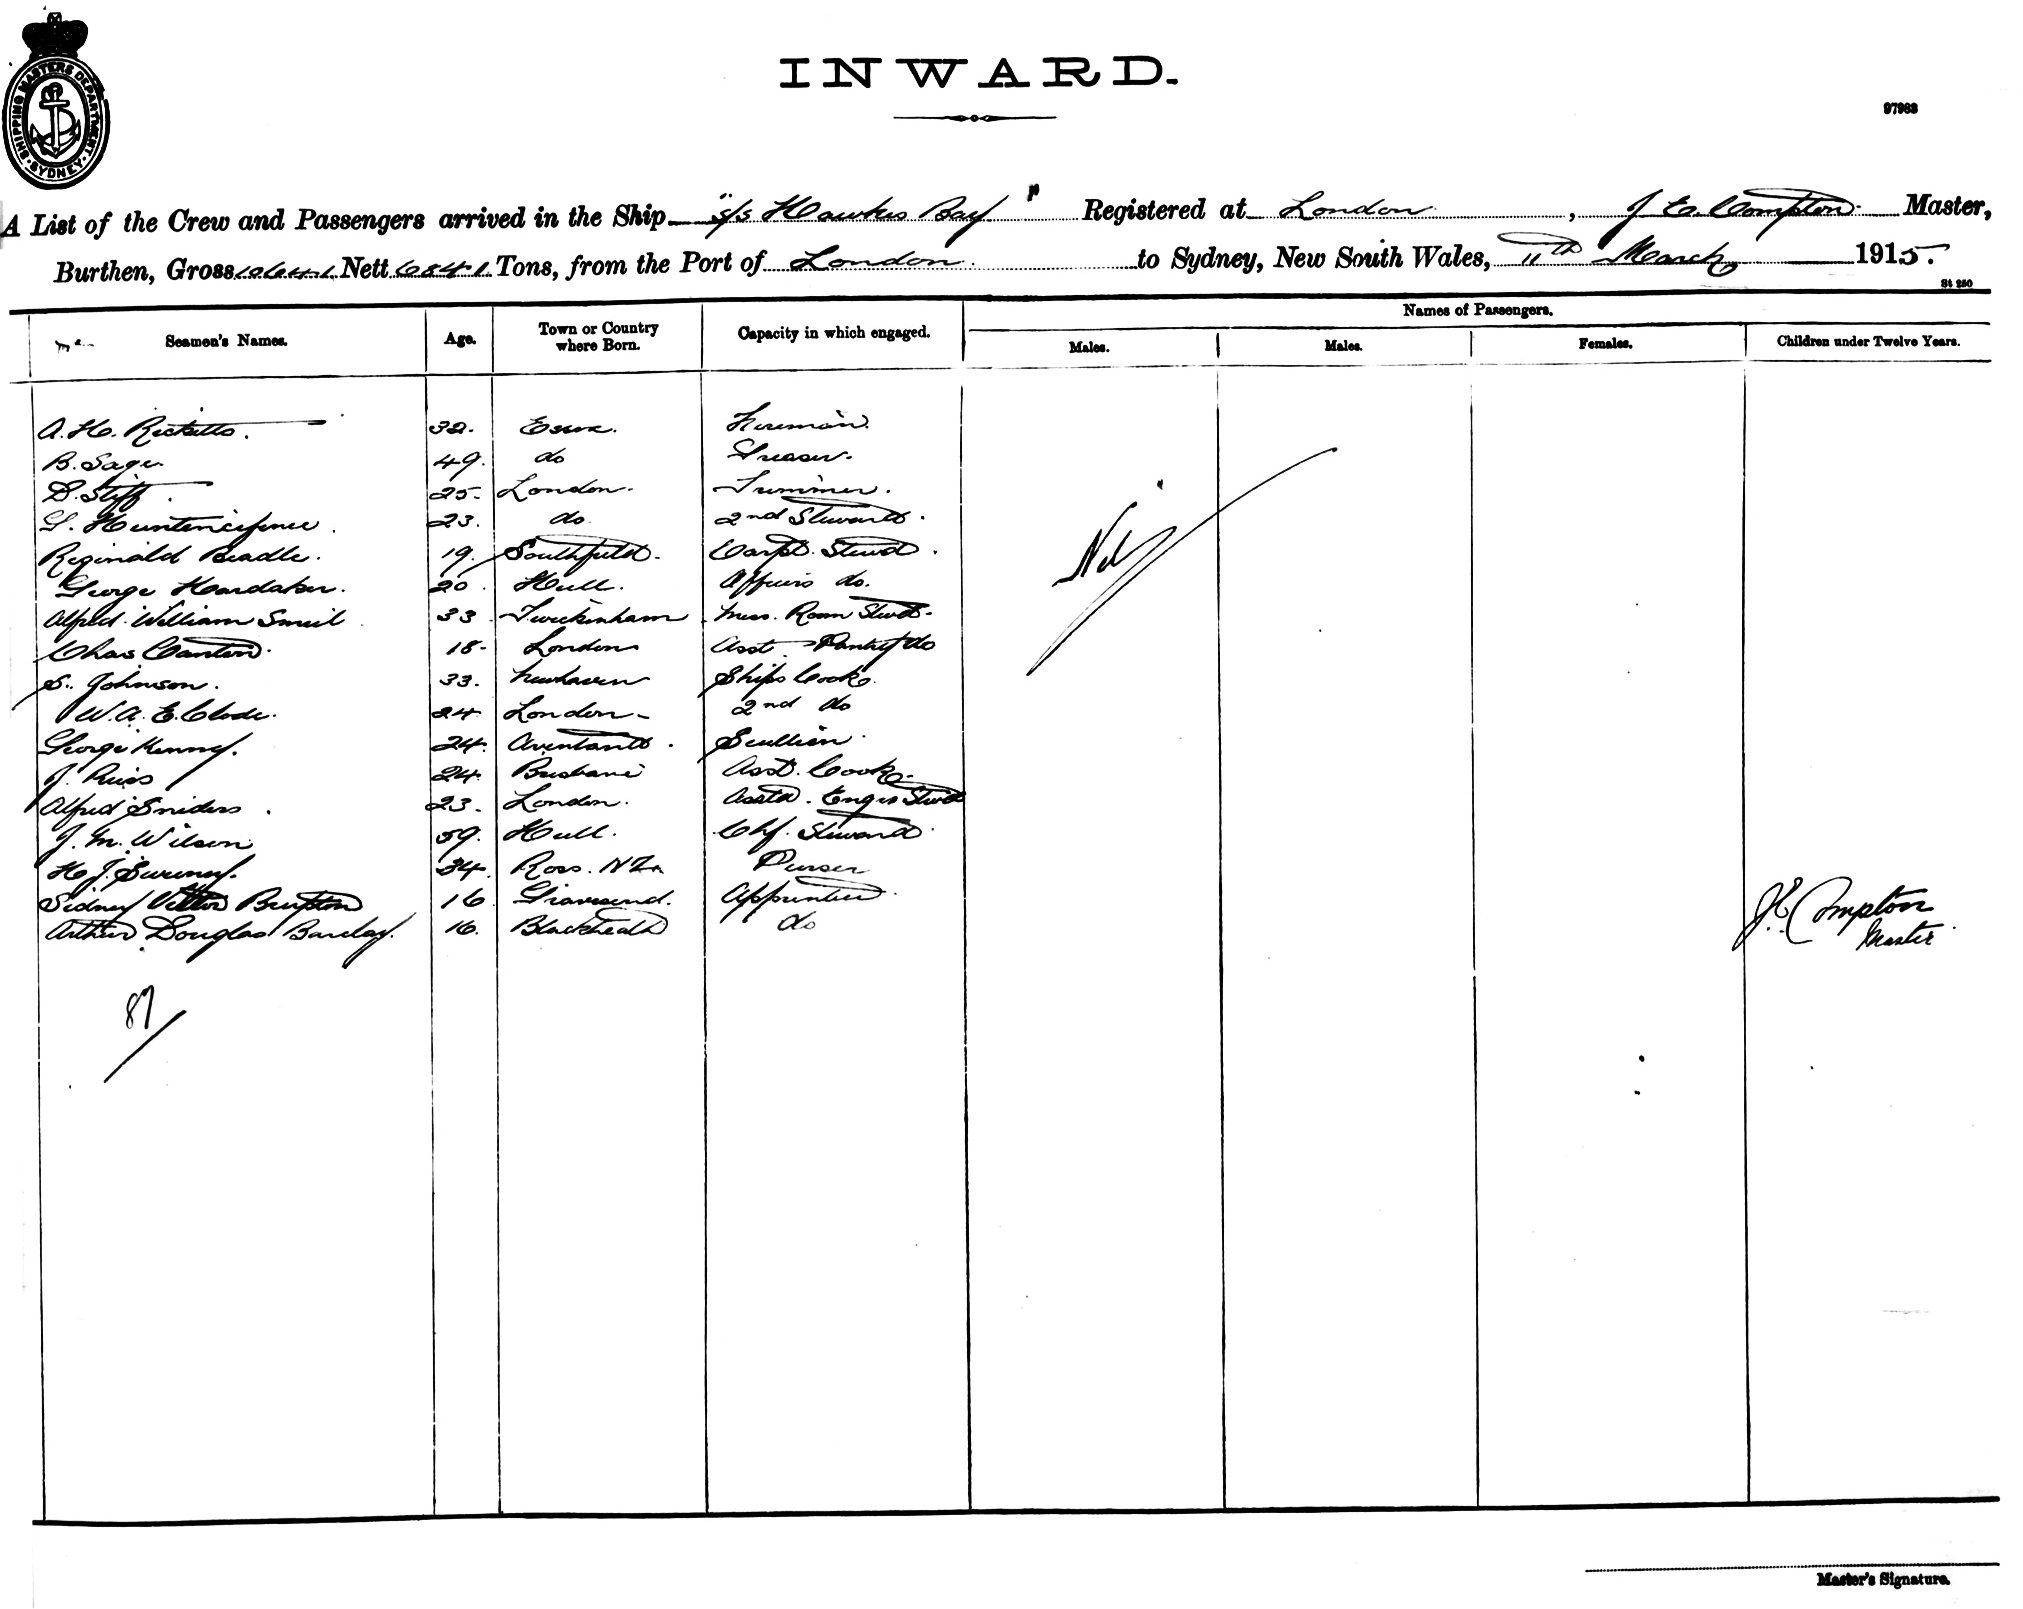 SHIPPING MASTERS DEPARTMENT. SYDNEY.
INWARD.
97983
A List of the Crew and Passengers arrived in the Ship "s/s Hawkes Bay" Registered at London, J. E. Compton Master,
Burthen, Gross 10641 Nett 6841 Tons, from the Port of London to Sydney, New South Wales, 11th March 1915.
St 250
Seamen's Names. Age. Town or Country where Born. Capacity in which engaged. Names of Passengers.
Males. Males. Females. Children under Twelve Years.
A. H. Ricketts. 32. Essex. Fireman.
B. Sage 49. do Greaser.
D. Stiff. 25. London. Trimmer.
23. do 2nd Steward.
Reginald Beadle. 19. Southfield. Capt. Stewd.
George Hardaker. 20. Hull. Officers do.
Alfred William 33 Twickenham Mess Room Stewd.
Chas Canton. 18. London Asst Pantry do
S. Johnson. 33. Newhaven Ships Cook.
W. A. E. Clode. 24 London 2nd do
George Kenney. 24. Scullion.
J. 24. Brisbane Asst. Cook.
Alfred Sniders. 23. London. Asst. Engrs Stwd
J. M. Wilson 59. Hull. Chf. Steward.
H. J. Sweeney. 34. Ross. NZ. Purser
Sidney Victor Burston 16 Gravesend. Apprentice.
Arthur Douglas Barclay. 16. Blackheath do
Nil
J E Compton
Master
87
Master's Signature.